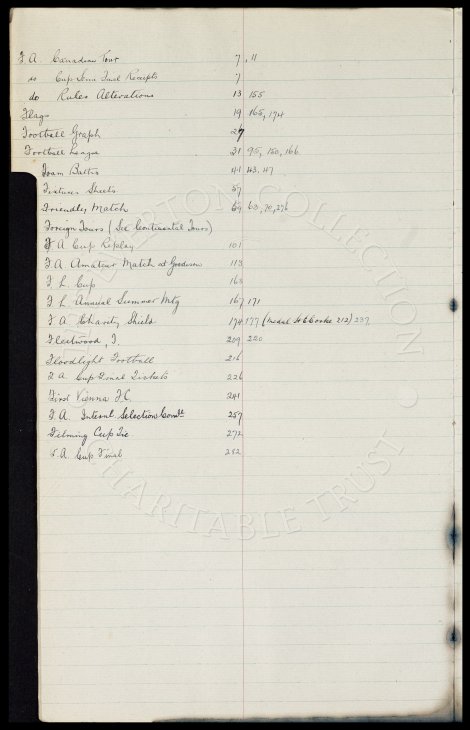 F A Canadian Tour 7, 11
do Cup Semi Final Receipts 7
do Rules Alterations 13 155
Flags 19 165, 174
Football Graph 27
Football League 31 95, 150, 166
Foam Baths 41 43, 47
Fixtures Sheets 57
Friendly Match 59 63, 70, 276
Foreign Tours (See Continental Tours)
F A Cup Replay 101
F.A. Amateur Match at Goodison 113
F L Cup 163
F L Annual Summer Mtg 167 171
F A Charity Shield 174 177 (Medal H Cooke 212) 237
Fleetwood, T. 209 220
Floodlight Football 216
F.A. Cup Final Tickets 226
First Vienna F.C. 241
F.A. Internl. Selection Comtt 257
Filming Cup Tie 272
F A Cup Final 282
EVERTON COLLECTION
CHARITABLE TRUST